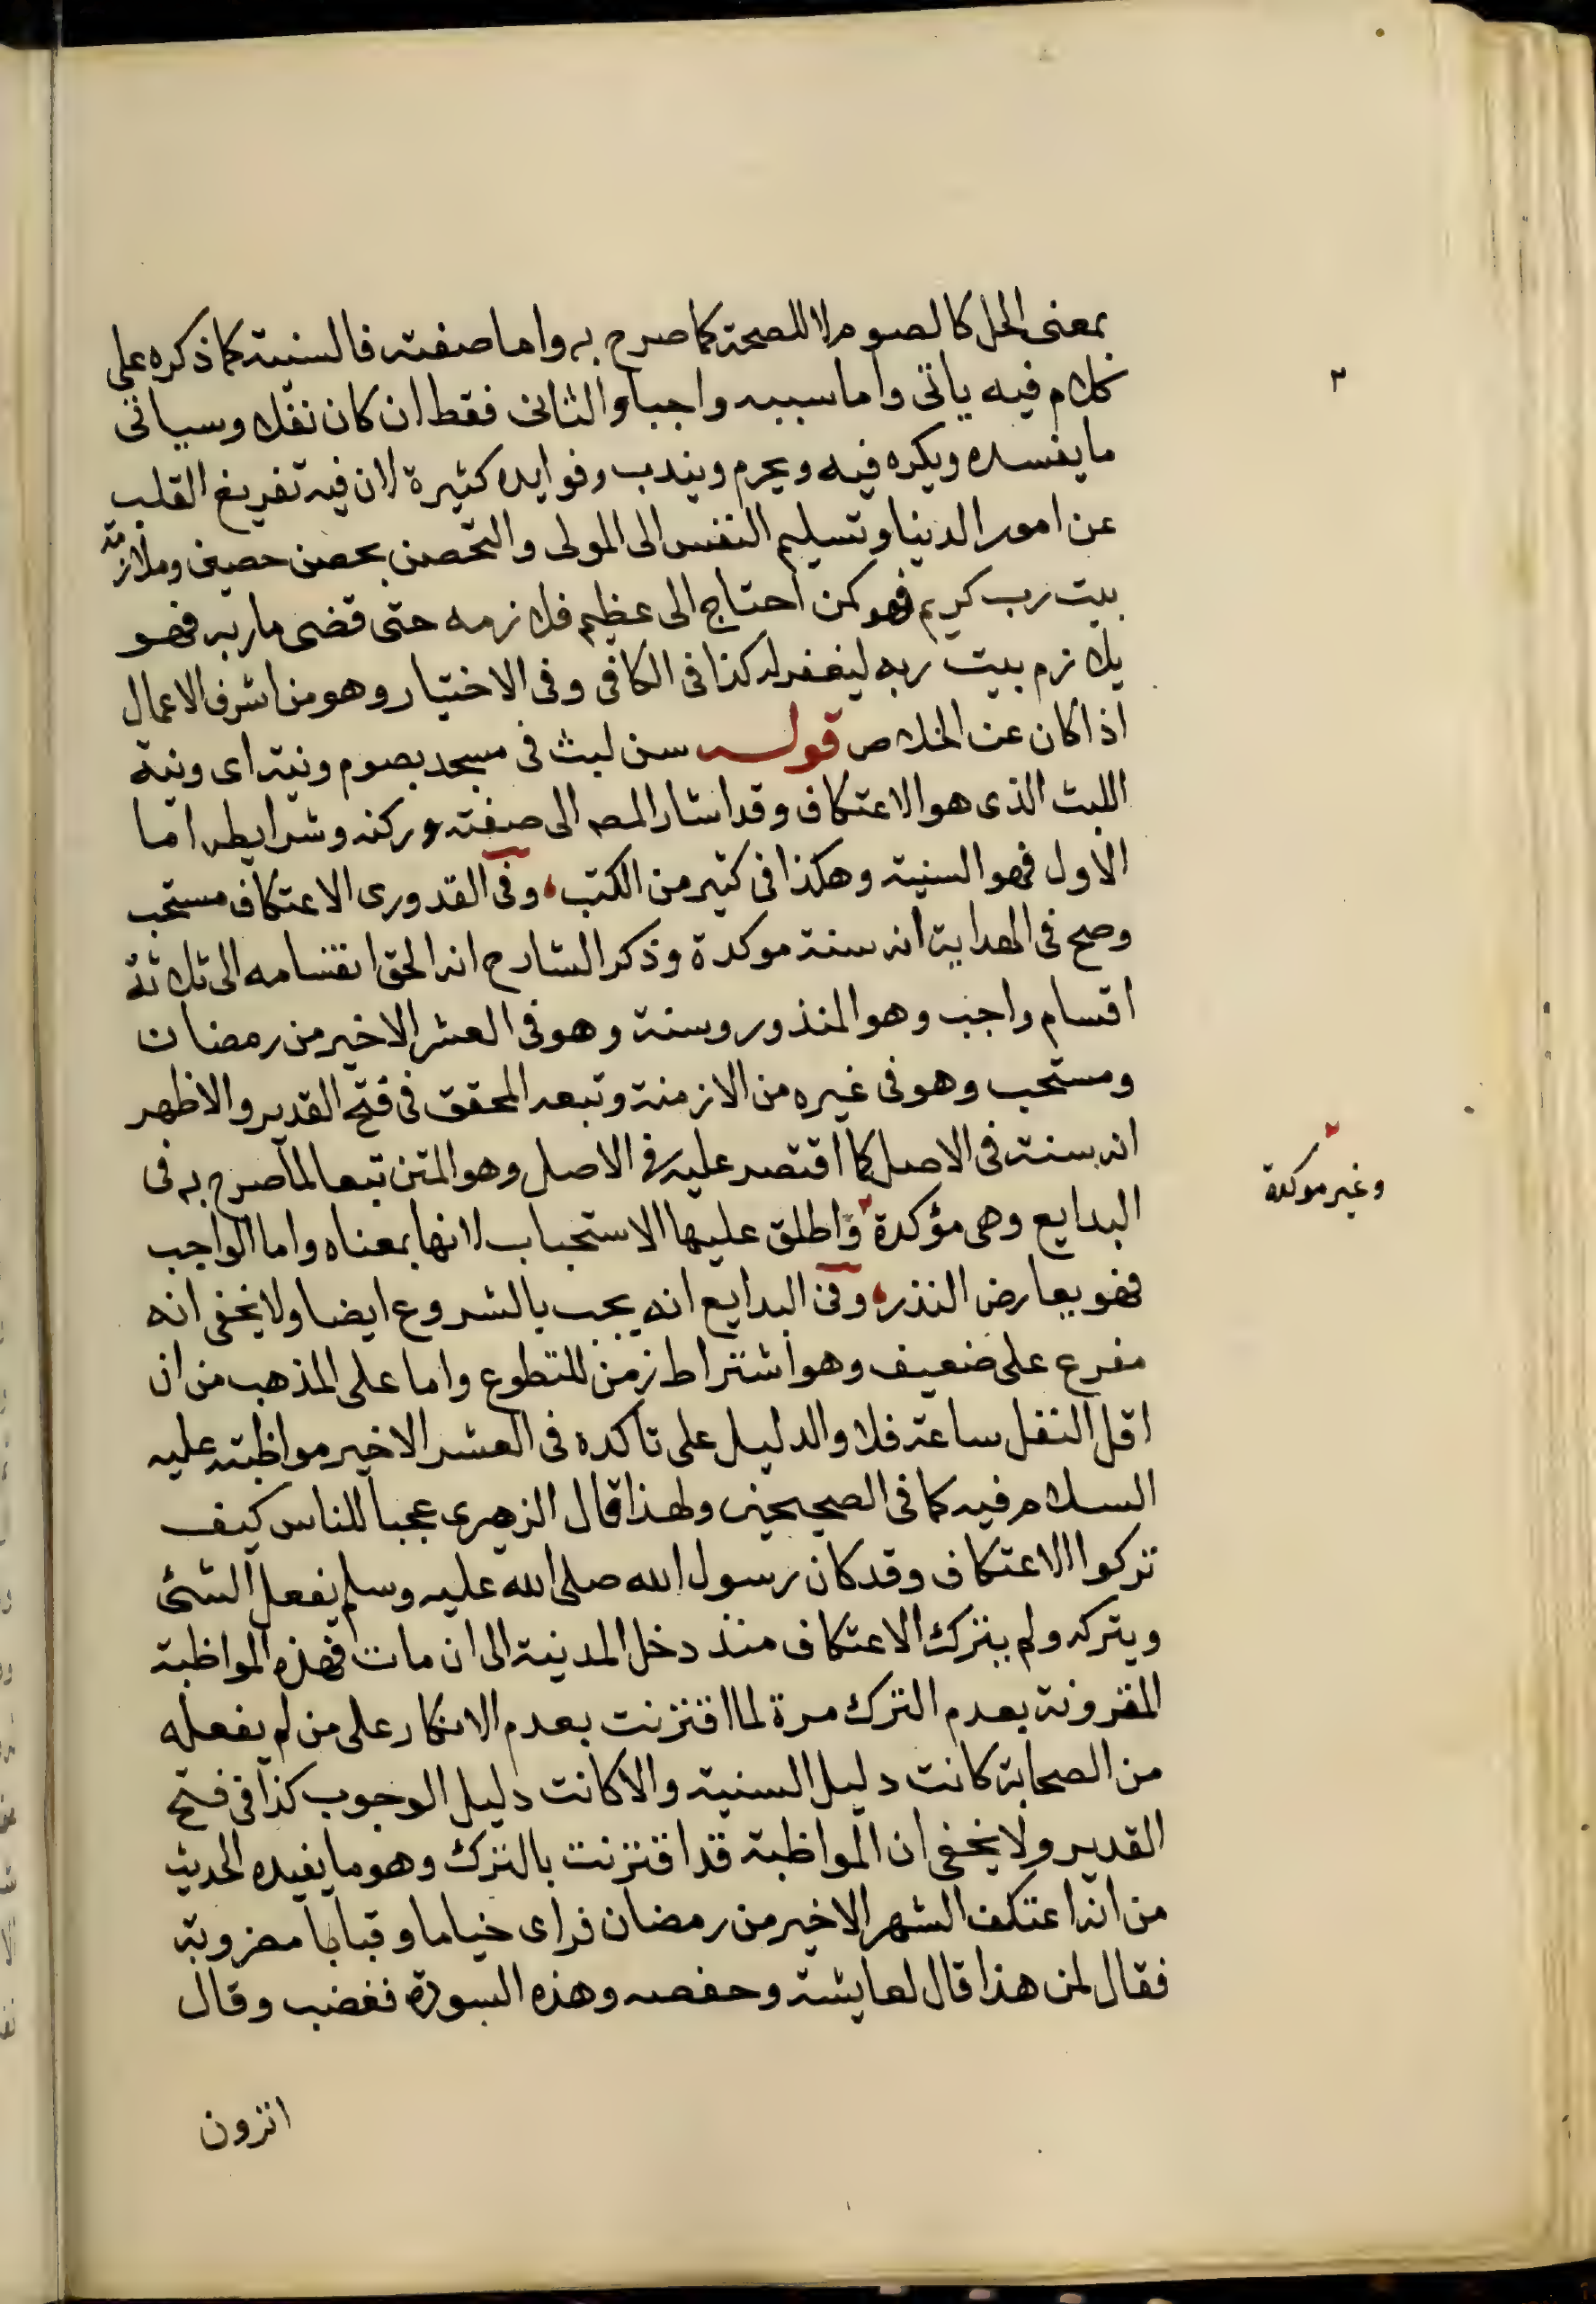 بمعنى الحل كالصوم لا للصحة كما صرح به واما صفته فالسنية كما ذكره على
كلام فيه ياتى واما سببه واجبا والثانى فقط ان كان نفلا وسياتى
ما يفسده ويكره فيه ويحرم ويندب وفوايده كثيرة لان فيه تفريغ القلب
عن امور الدنيا وتسليم النفس الى المولى والتحصن بحصن حصين وملازمة
بيت رب كريم فهو كمن احتاج الى عظيم فلازمه حتى قضى ماربه فهو
يلازم بيت ربه ليغفر له كذا فى الكافى وفى الاختيار وهو من اشرف الاعمال
اذا كان عن اخلاص قوله سن لبث فى مسجد بصوم ونية اى ونية
اللبث الذى هو الاعتكاف وقد اشار المص الى صفته وركنه وشرايطه اما
الاول فهو السنية وهكذا فى كثير من الكتب وفى القدورى الاعتكاف مستحب
وصح فى الهداية انه سنة موكدة وذكر الشارح ان الحق انقسامه الى ثلاثة
اقسام واجب وهو المنذور وسنة وهو فى العشر الاخير من رمضان
ومستحب وهو فى غيره من الازمنة وتبعه المحقق فى فتح القدير والاظهر
انه سنة فى الاصل كما اقتصر عليه فى الاصل وهو المتن تبعا لما صرح به فى
البدايع وهى مؤكدة واطلق عليها الاستحباب لانها بمعناه واما الواجب
وغير موكدة
فهو بعارض النذر وفى البدايع انه يجب بالشروع ايضا ولا يخفى انه
مفرع على ضعيف وهو اشتراط زمن للتطوع واما على المذهب من ان
اقل النفل ساعة فلا والدليل على تاكده فى العشر الاخير مواظبته عليه
السلام فيه كما فى الصحيحين ولهذا قال الزهرى عجبا للناس كيف
تركوا الاعتكاف وقد كان رسول الله صلى الله عليه وسلم يفعل الشئ
ويتركه ولم يترك الاعتكاف منذ دخل المدينة الى ان مات فهذه المواظبة
المقرونة بعدم الترك مرة لما اقترنت بعدم الانكار على من لم يفعله
من الصحابة كانت دليل السنية والا كانت دليل الوجوب كذا فى فتح
القدير ولا يخفى ان المواظبة قد اقترنت بالترك وهو ما يفيده الحديث
من انه اعتكف الشهر الاخير من رمضان فراى خياما وقبابا مضروبة
فقال لمن هذا قال لعايشة وحفصه وهذه السودة فغضب وقال
اتزون